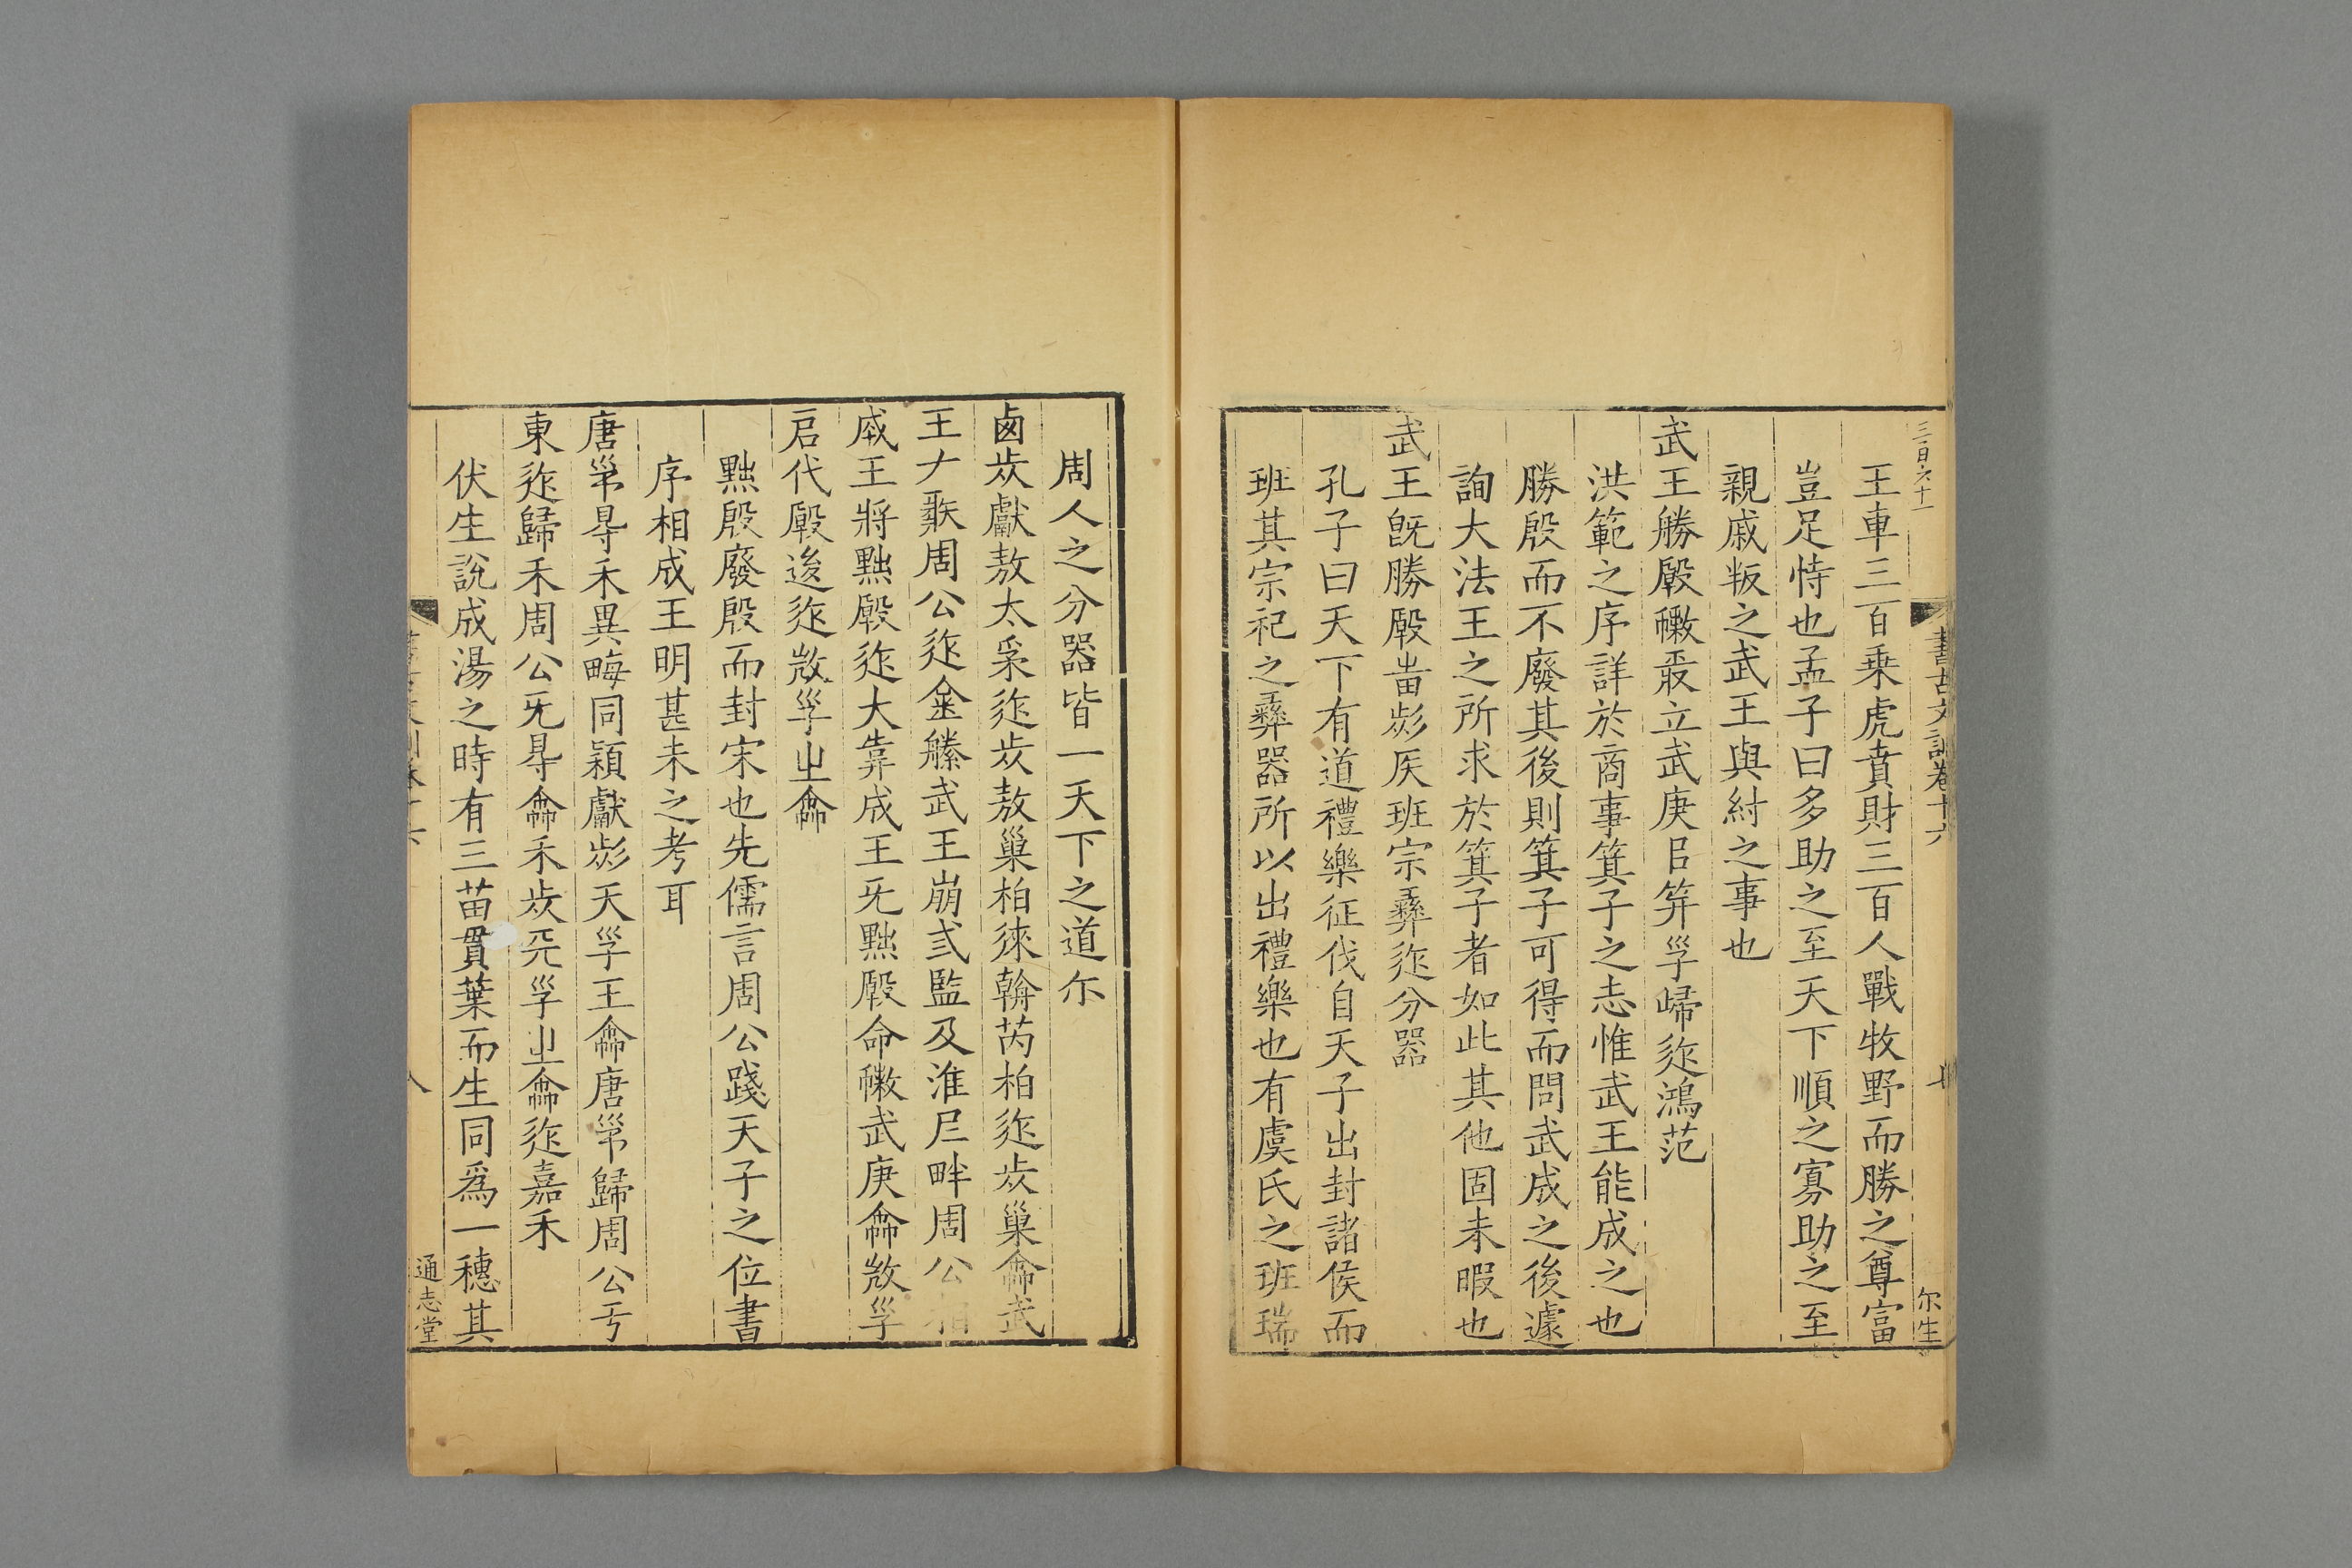 三百六十一
書古文訓卷十六
尔生
王車三百乗虎賁財三百人戰牧野而勝之尊富
豈足恃也孟子曰多助之至天下順之寡助之至
親戚叛之武王與紂之事也
武王勝殷立武庚㠯歸鴻范
洪範之序詳於商事箕子之志惟武王能成之也
勝殷而不廢其後則箕子可得而問武成之後遽
詢大法王之所求於箕子者如此其他固未暇也
武王旣勝班宗彝分器
孔子曰天下有道禮樂征伐自天子出封諸侯而
班其宗祀之彝器所以出禮樂也有虞氏之班瑞
周人之分器皆一天下之道尓
卤獻太巢柏徠芮柏巢武
王周公武王崩弎監及淮𡰥畔周公相
成王將黜大成王旡黜命武庚
启代後
黜殷廢殷而封宋也先儒言周公踐天子之位書
序相成王明甚未之考耳
唐㝵禾異畮同穎獻天王唐歸周公亏
東歸禾周公旡㝵禾嘉禾
伏生說成湯之時有三苗貫葉而生同爲一穗其
八
通志堂